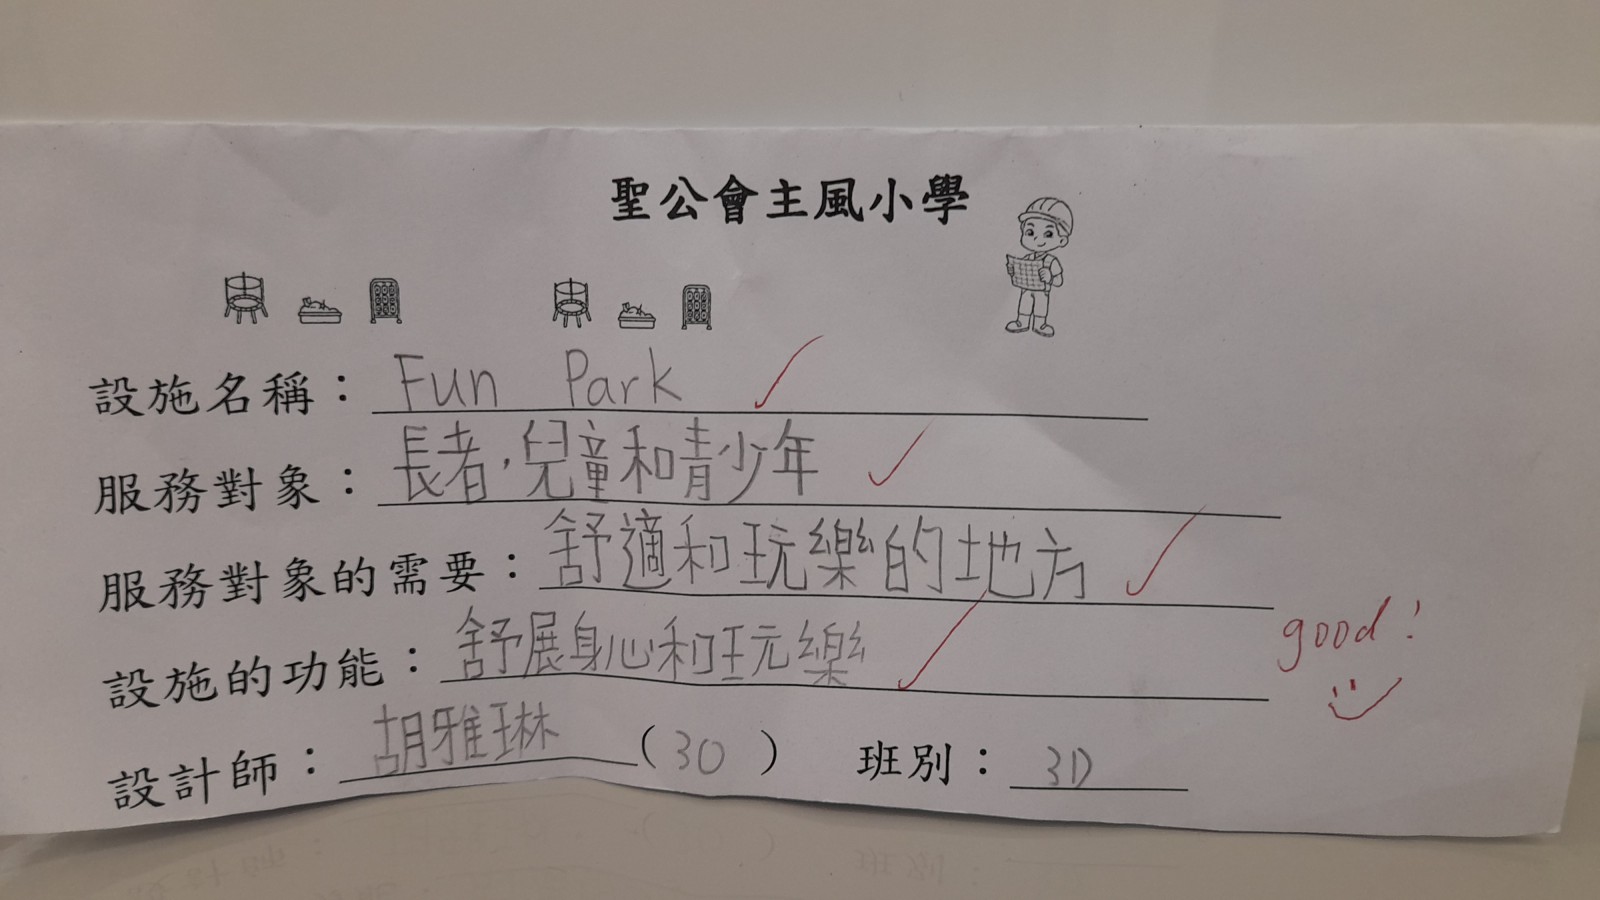 聖公會主風小學
設施名稱：Fun Park
服務對象：長者，兒童和青少年
服務對象的需要：舒適和玩樂的地方
設施的功能：舒展身心和玩樂
good!
設計師：胡雅琳（30）　班別：3D